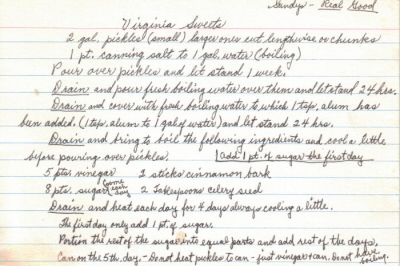 Sandys - Real Good
Virginia Sweets
2 gal. pickles (small) larger ones cut lengthwise or chunks
1 pt. canning salt to 1 gal. water (boiling)
Pour over pickles and let stand 1 week.
Drain and pour fresh boiling water over them and let stand 24 hrs.
Drain and cover with fresh boiling water to which 1 tsp. alum has
been added. (1 tsp. alum to 1 gal of water) and let stand 24 hrs.
Drain and bring to boil the following ingredients and cool a little
before pouring over pickles. add 1 pt. of sugar the first day
5 pts vinegar 2 sticks cinnamon bark
8 pts. sugar (some each day) 2 Teaspoons celery seed
Drain and heat each day for 4 days always cooling a little.
The first day only add 1 pt. of sugar.
Portion the rest of the sugar into equal parts and add rest of the days.
Can on the 5th day. - Do not heat pickles to can - just vinegar & can. Do not have boiling.